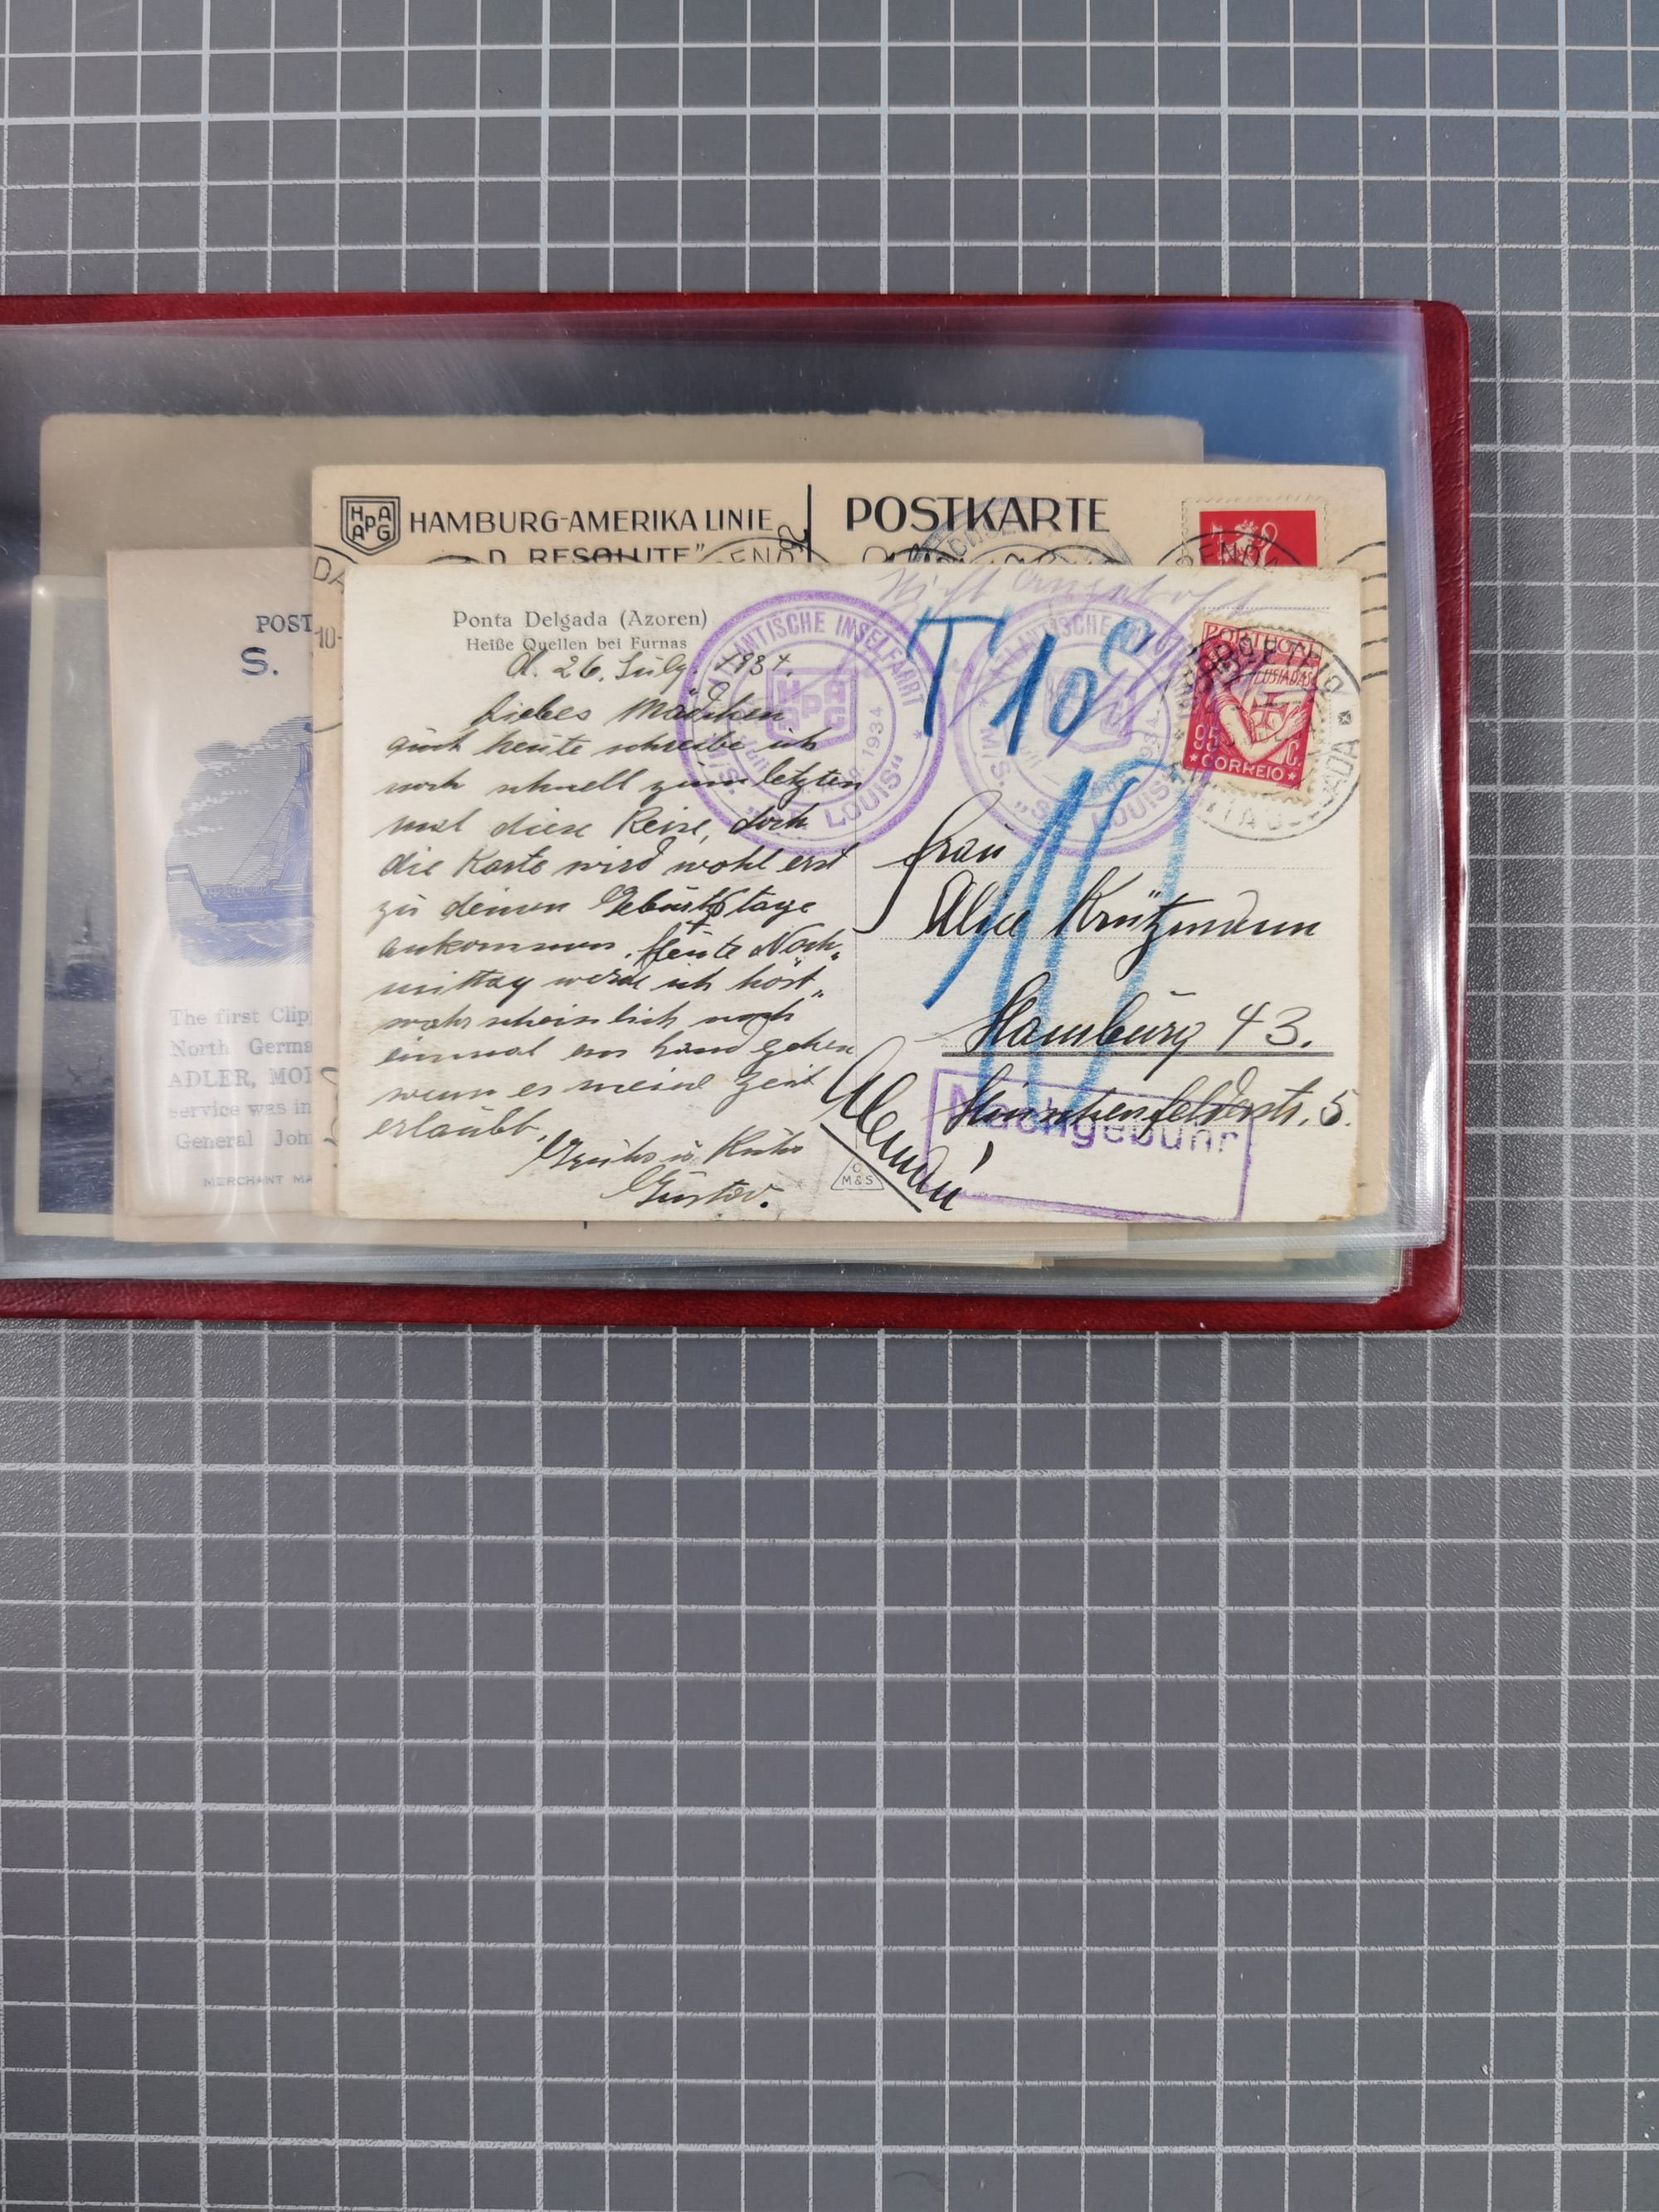 HAPAG HAMBURG-AMERIKA LINIE
POSTKARTE
D. RESOLUTE"
POST
S.
10-
The first Clip
North Germa
ADLER, MO
service was in
General Joh
MERCHANT MA
Ponta Delgada (Azoren)
Heiße Quellen bei Furnas
d. 26. July 1934.
Liebes Mädchen
auch heute schreibe ich
noch schnell zum letzten
mal diese Reise, doch
die Karte wird wohl erst
zu deinen Geburtstage
ankommen. Heute Nach„
mittag werde ich höst„
wahrscheinlich noch
einmal an Land gehen
wenn es meine Zeit
erlaubt.
Grüße u. Küße
Gustav.
ATLANTISCHE INSELFAHRT
HAPAG
1934
M/S. „ST. LOUIS"
ATLANTISCHE
1934
M/S. „ST. LOUIS"
T 10 c
PORTUGAL
LUSIADAS
95 C.
CORREIO
10
Frau
Alice Krützmann
Hamburg 43.
5.
Nachgebühr
C
M&S